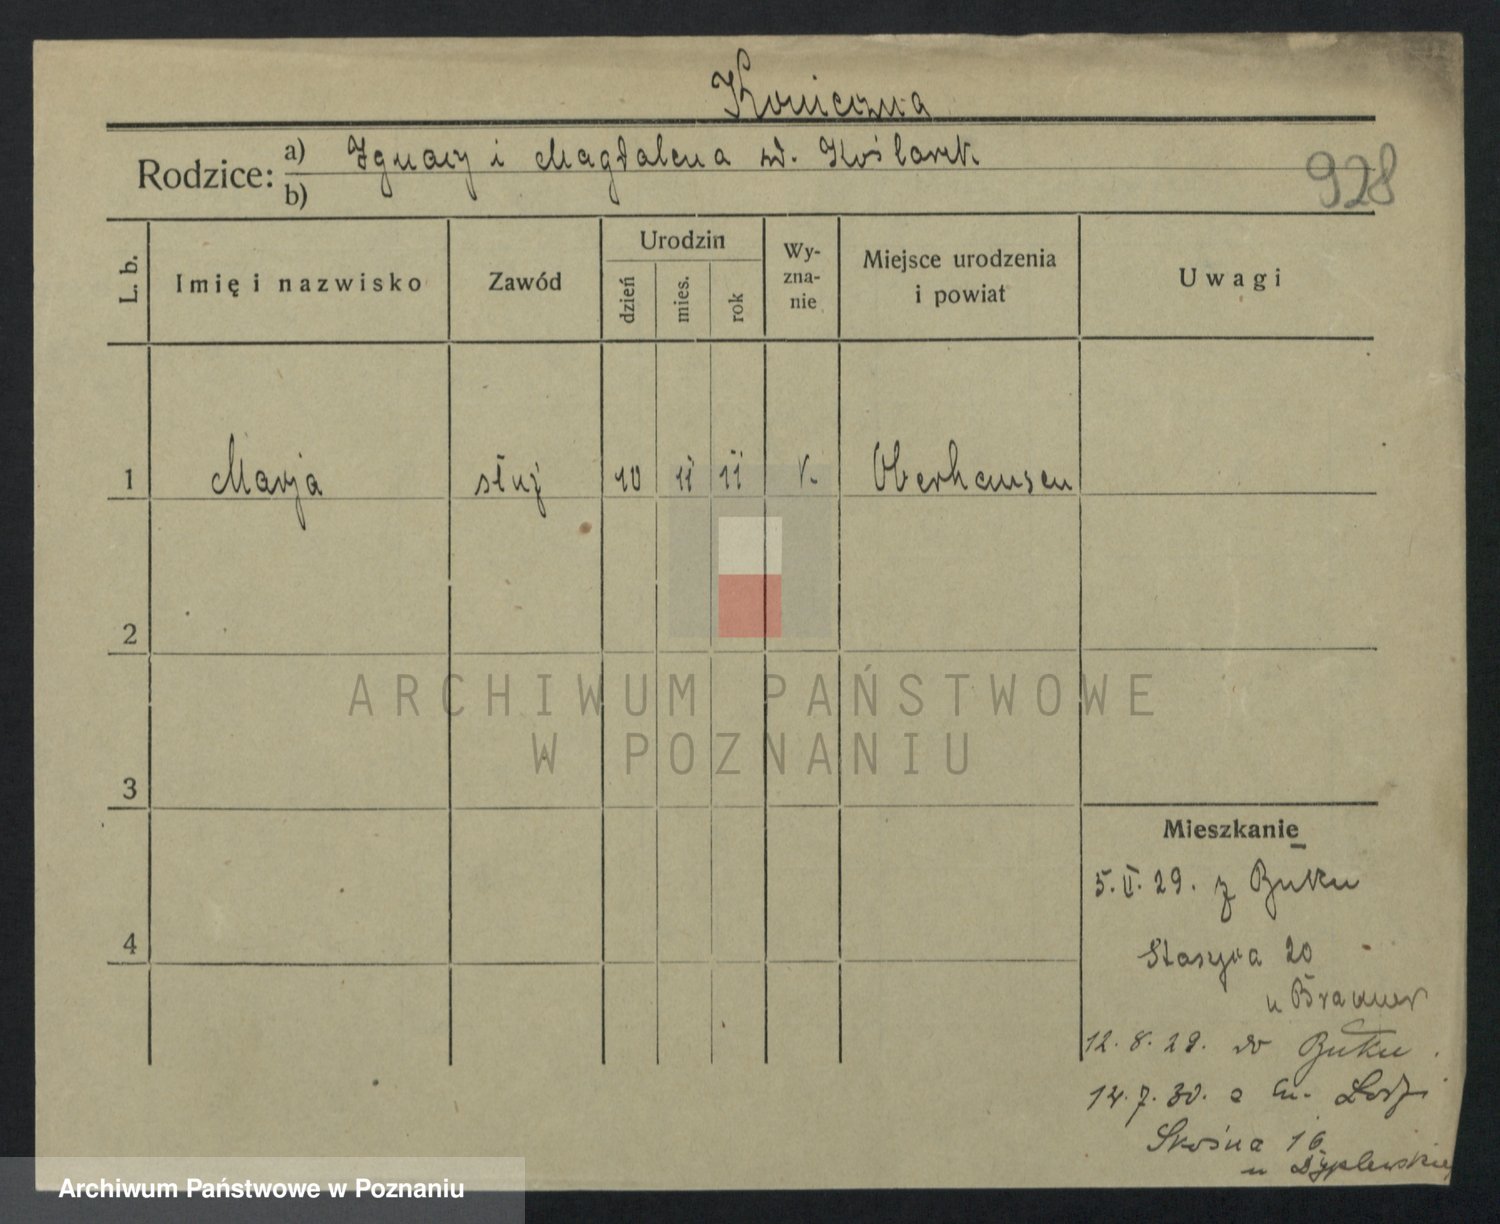 Konieczna
Rodzice: a) Ignacy i Magdalena zd. Koślarek
b)
928
L. b.
Imię i nazwisko
Zawód
Urodzin
dzień
mies.
rok
Wy-
zna-
nie
Miejsce urodzenia
i powiat
Uwagi
1 Marja służ 10 11 11 k. Oberhausen
2
3
4
Mieszkanie
5.II.29. z Buku
Staszyca 20
u Brauner
12.8.29. do Buku.
14.7.30. z m. Łodzi
Skośna 16
u
ARCHIWUM PAŃSTWOWE
W POZNANIU
Archiwum Państwowe w Poznaniu